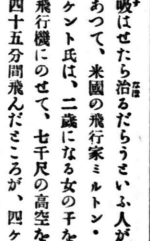 吸はせたら治るだらうといふ人が
あつて、米國の飛行家ミルトン・
ケント氏は、二歳になる女の子を
飛行機にのせて、七千尺の高空を
四十五分間飛んだところが、四ケ